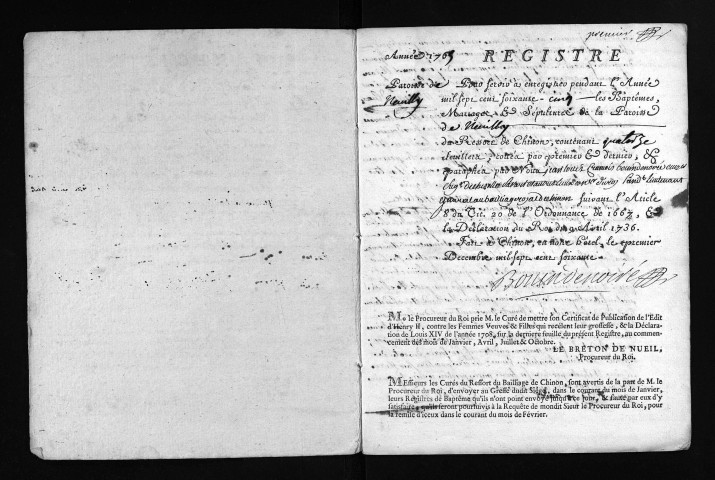 premier
Année 1765 REGISTRE
Paroisse de Neuilly
Pour servir à enregistrer pendant l'Année
mil sept cent soixante-cinq les Baptêmes,
Mariages, & Sépultures de la Paroisse
de Neuilly
du Ressort de Chinon, contenant quatorze
feuillets, cottés par premier & dernier, &
paraphés par Nous
suivant l'Article
8 du Tit. 20 de l'Ordonnance de 1667, &
la Déclaration du Roi du 9 Avril 1736.
Fait à Chinon, en notre hôtel, le premier
Decembre mil sept cent soixante
Bouindenoiré
Me le Procureur du Roi prie M. le Curé de mettre son Certificat de Publication de l'Edit
d'Henry II, contre les Femmes Veuves & Filles qui recelent leur grossesse, & la Déclaration
de Louis XIV de l'année 1708, sur la derniere feuille du présent Registre, au commen-
cement des mois de Janvier, Avril, Juillet & Octobre.
LE BRETON DE NUEIL,
Procureur du Roi.
MEssieurs les Curés du Ressort du Bailliage de Chinon, sont avertis de la part de M. le
Procureur du Roi, d'envoyer au Greffe dudit Siége, dans le courant du mois de Janvier,
leurs Registres de Baptême qu'ils n'ont point envoyé jusqu'à ce jour, & faute par eux d'y
satisfaire, qu'ils seront poursuivis à la Requête de mondit Sieur le Procureur du Roi, pour
la remise d'iceux dans le courant du mois de Février.